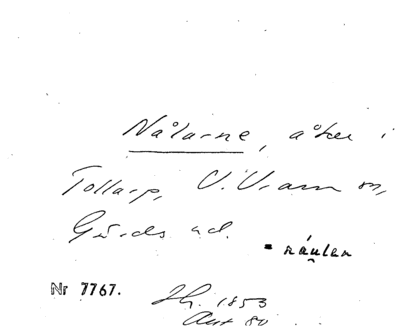 Nålarne, åker i
Tollarp, V. Vram sn,
Gärds hd.
- náular
Nr 7767.
1853